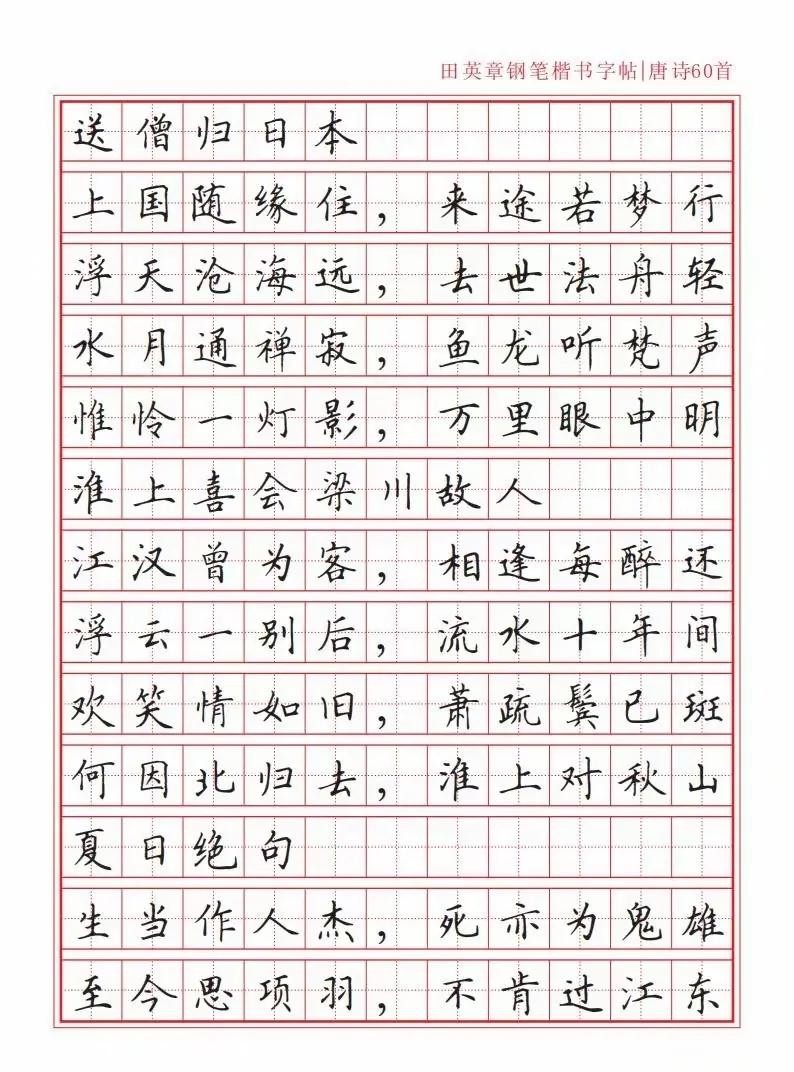 田英章钢笔楷书字帖|唐诗60首
送僧归日本
上国随缘住，来途若梦行
浮天沧海远，去世法舟轻
水月通禅寂，鱼龙听梵声
惟怜一灯影，万里眼中明
淮上喜会梁川故人
江汉曾为客，相逢每醉还
浮云一别后，流水十年间
欢笑情如旧，萧疏鬓已斑
何因北归去，淮上对秋山
夏日绝句
生当作人杰，死亦为鬼雄
至今思项羽，不肯过江东